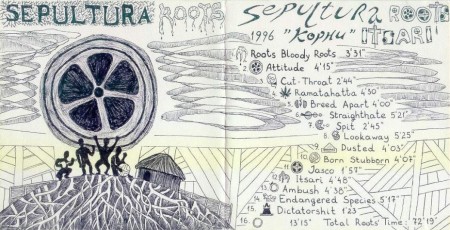 SEPULTURA ROOTS
Sepultura ROOTS
1996 "Корни" ITSÁRI
1. Roots Bloody Roots 3'31"
2. Attitude 4'15"
3. Cut-Throat 2'44"
4. Ramatahatta 4'30"
5. Breed Apart 4'00"
6. Straighthate 5'21"
7. Spit 2'45"
8. Lookaway 5'25"
9. Dusted 4'03"
10. Born Stubborn 4'07"
11. Jasco 1'57"
12. Itsari 4'48"
13. Ambush 4'38"
14. Endangered Species 5'17"
15. Dictatorshit 1'23
16. 13'15" Total Roots' Time: 72'19"